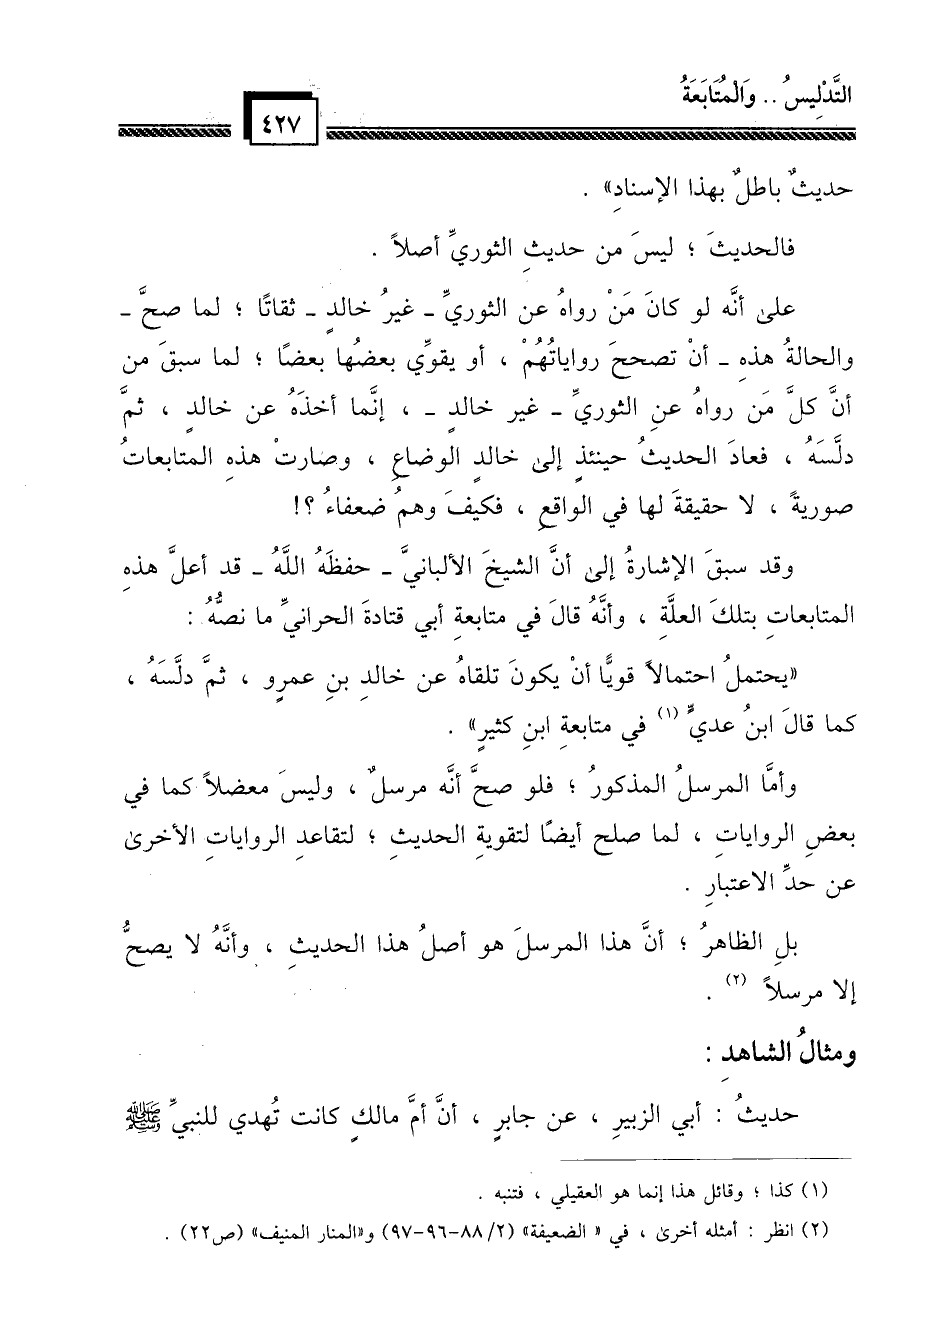 التَّدْلِيسُ .. وَالْمُتَابَعَةُ
٤٢٧
حديثٌ باطلٌ بهذا الإسنادِ» .
فالحديثَ ؛ ليسَ من حديثِ الثوريِّ أصلاً .
على أنَّه لو كانَ مَنْ رواهُ عن الثوريِّ ـ غيرُ خالدٍ ـ ثقاتًا ؛ لما صحَّ ـ
والحالةُ هذهِ ـ أنْ تصححَ رواياتُهُمْ ، أو يقوِّي بعضُها بعضًا ؛ لما سبقَ من
أنَّ كلَّ مَن رواهُ عنِ الثوريِّ ـ غير خالدٍ ـ ، إنَّما أخذَهُ عن خالدٍ ، ثمَّ
دلَّسَهُ ، فعادَ الحديثُ حينئذٍ إلى خالدٍ الوضاعِ ، وصارتْ هذهِ المتابعاتُ
صوريةً ، لا حقيقةَ لها في الواقعِ ، فكيفَ وهمُ ضعفاءُ ؟!
وقد سبقَ الإشارةُ إلى أنَّ الشيخَ الألبانيَّ ـ حفظَهُ اللَّهُ ـ قد أعلَّ هذهِ
المتابعاتِ بتلكَ العلَّةِ ، وأنَّهُ قالَ في متابعةِ أبي قتادةَ الحرانيِّ ما نصُّهُ :
«يحتملُ احتمالاً قويًّا أنْ يكونَ تلقاهُ عن خالدِ بنِ عمرٍو ، ثمَّ دلَّسَهُ ،
كما قالَ ابنُ عديٍّ (١) في متابعةِ ابنِ كثيرٍ» .
وأمَّا المرسلُ المذكورُ ؛ فلو صحَّ أنَّه مرسلٌ ، وليسَ معضلاً كما في
بعضِ الرواياتِ ، لما صلح أيضًا لتقويةِ الحديثِ ؛ لتقاعدِ الرواياتِ الأخرىٰ
عن حدِّ الاعتبارِ .
بلِ الظاهرُ ؛ أنَّ هذا المرسلَ هو أصلُ هذا الحديثِ ، وأنَّهُ لا يصحُّ
إلا مرسلاً (٢) .
ومثالُ الشاهدِ :
حديثُ : أبي الزبيرِ ، عن جابرٍ ، أنَّ أمَّ مالكٍ كانت تُهدي للنبيِّ ﷺ
(١) كذا ؛ وقائل هذا إنما هو العقيلي ، فتنبه .
(٢) انظر : أمثله أخرىٰ ، في « الضعيفة» (٢/ ٨٨-٩٦-٩٧) و«المنار المنيف» (ص٢٢) .